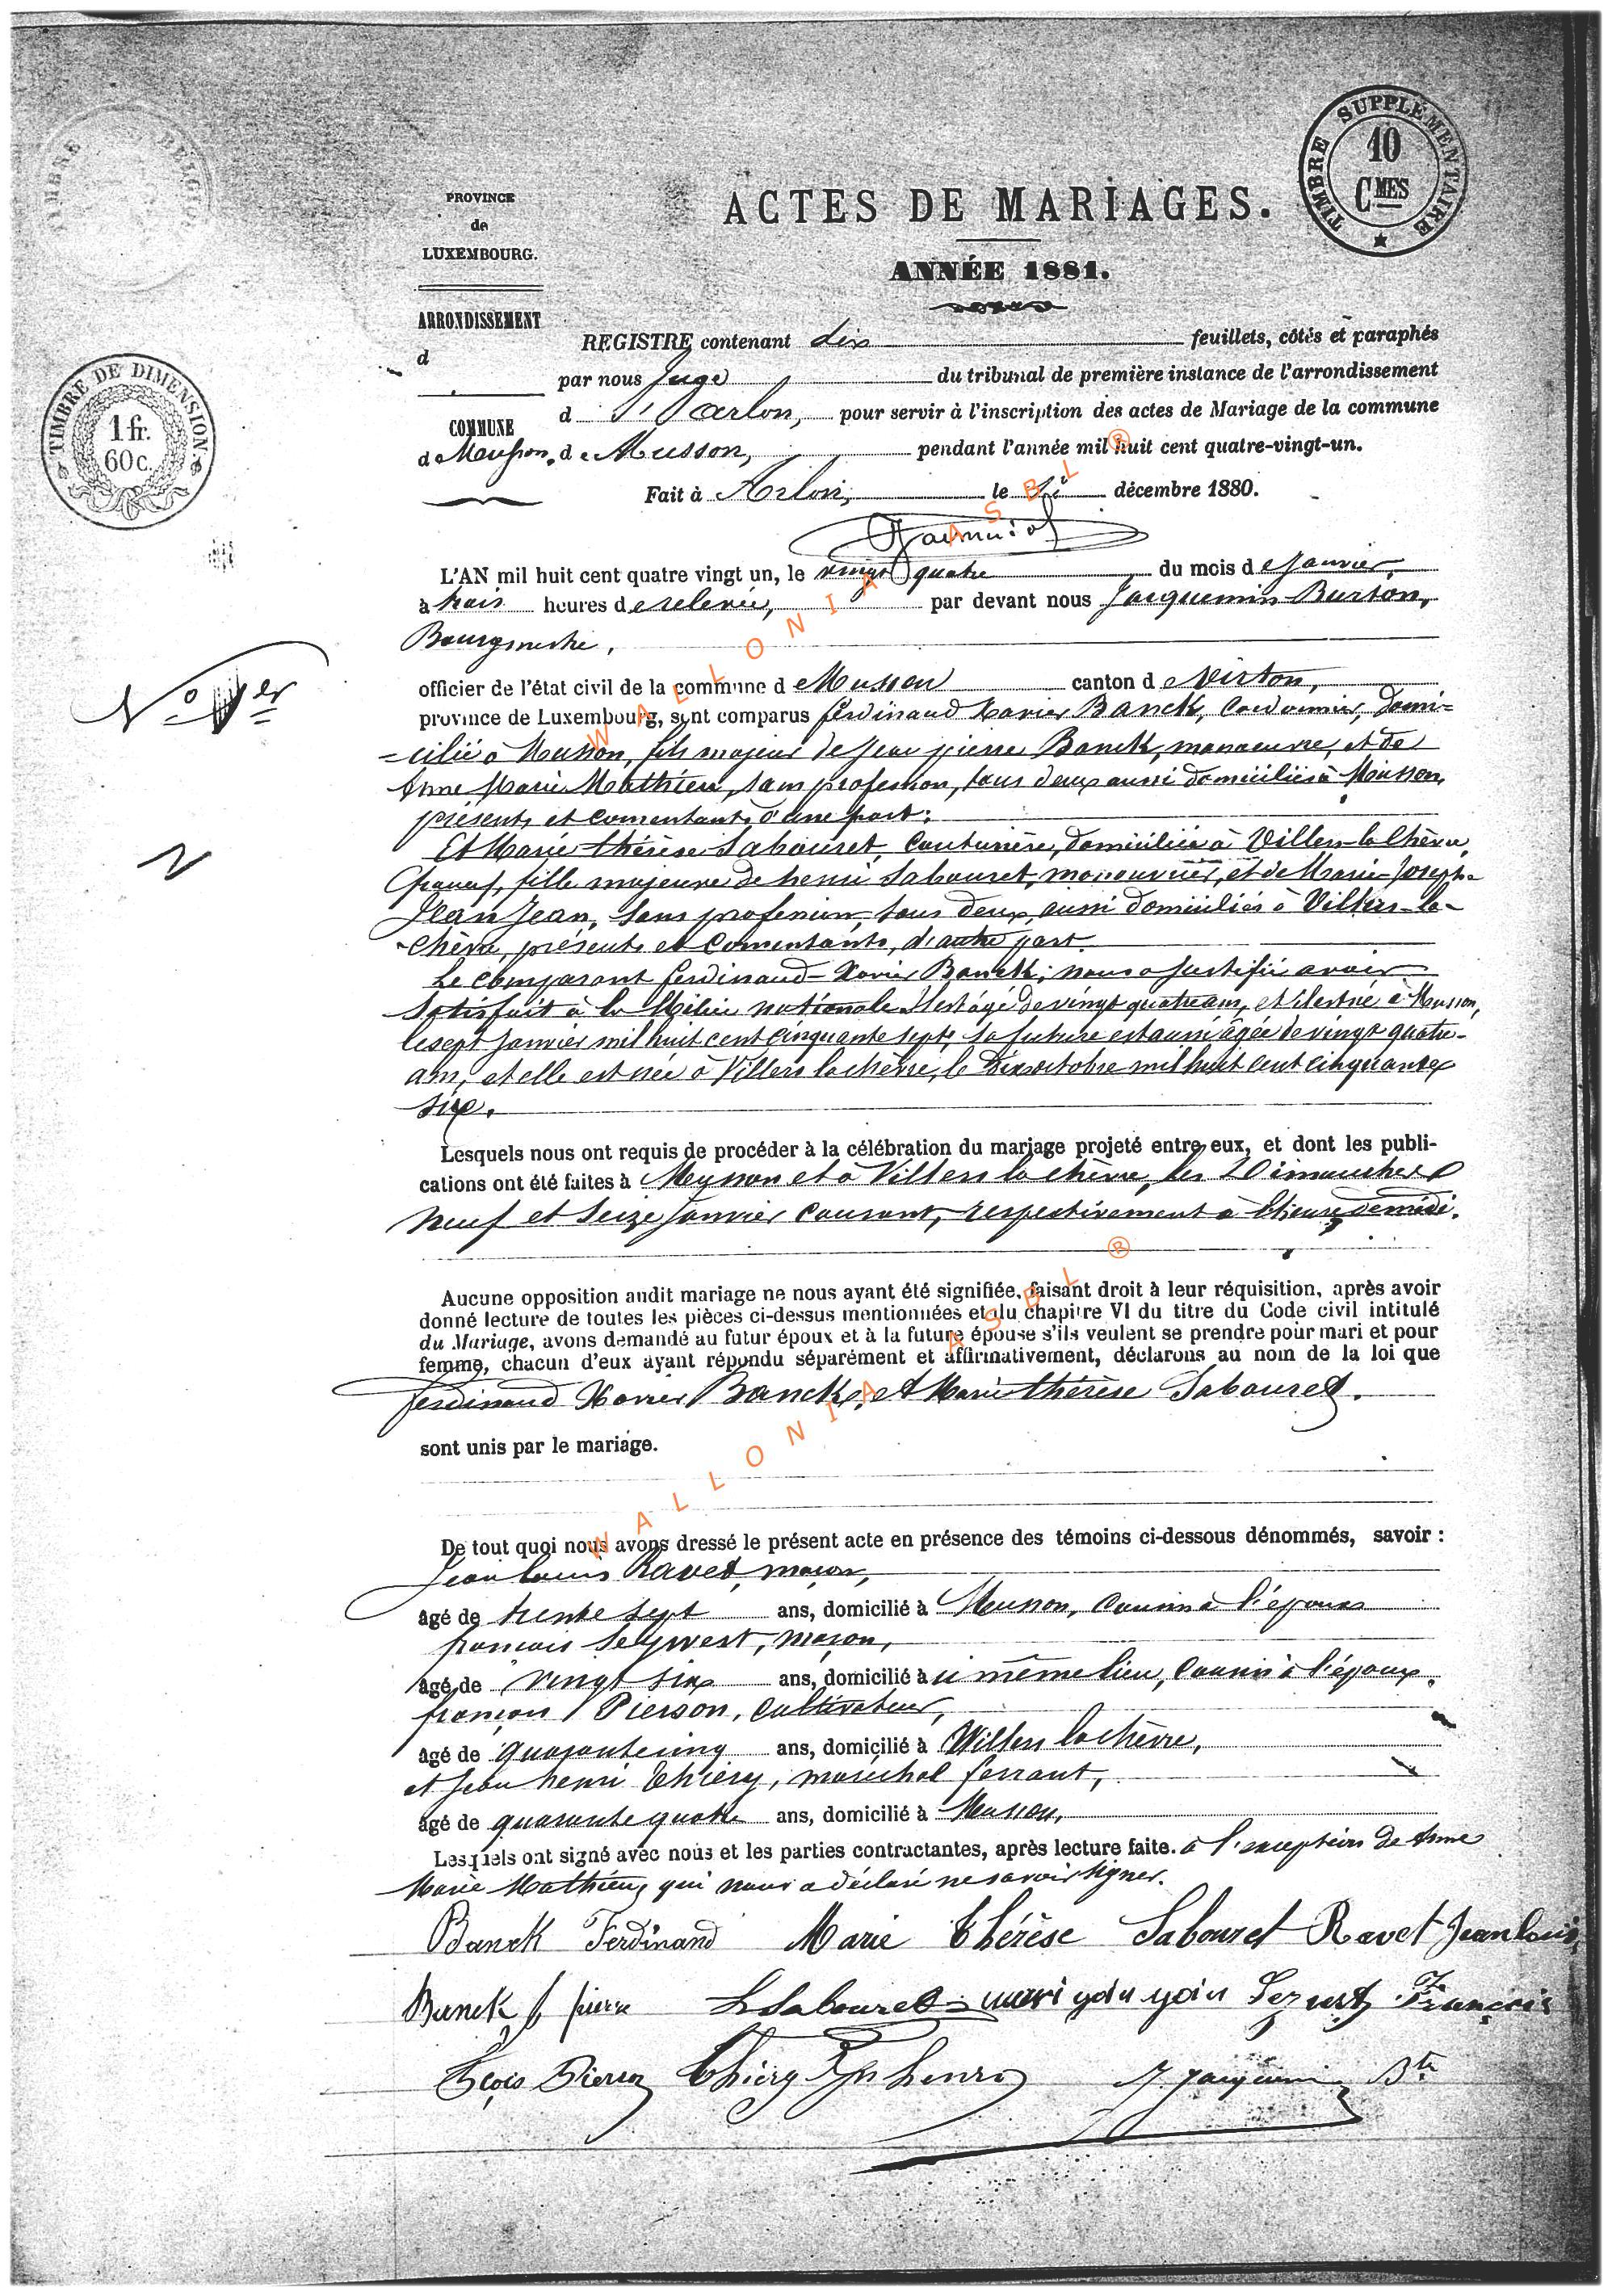 TIMBRE SUPPLÉMENTAIRE
10
CMES
PROVINCE
de
LUXEMBOURG.
ACTES DE MARIAGES.
ANNÉE 1881.
ARRONDISSEMENT
d
TIMBRE DE DIMENSION.
1 fr.
60 c.
COMMUNE
de Musson.
REGISTRE contenant dix feuillets, côtés et paraphés
par nous Juge du tribunal de première instance de l'arrondissement
d'Arlon, pour servir à l'inscription des actes de Mariage de la commune
de Musson, pendant l'année mil huit cent quatre-vingt-un.
Fait à Arlon, le décembre 1880.
L'AN mil huit cent quatre vingt un, le vingt quatre du mois de Janvier,
à trois heures de relevée, par devant nous Jacquemin Burton,
Bourgmestre,
No 1er
officier de l'état civil de la commune de Musson canton de Virton,
province de Luxembourg, sont comparus ferdinand Xavier Banck, Cordonnier, domi=
=cilié à Musson, fils majeur de Jean pierre Banck, manoeuvre, et de
Anne Marie Mathieu, sans profession, tous deux aussi domiciliés à Musson,
présents et consentants d'une part;
Et Marie thérèse Sabouret, Couturière, domiciliée à Villers-la Chèvre,
fille majeure de henri Sabouret, manouvrier, et de Marie-Joseph
Jean Jean, sans profession, tous deux aussi domiciliés à Villers-la-
-Chèvre, présents et Consentants, d'autre part.
Le comparant ferdinand-Xavier Banck, nous a justifié avoir
satisfait à la Milice nationale. Il est âgé de vingt quatre ans, et il est né à Musson,
le sept Janvier mil huit cent cinquante sept, la future est aussi âgée de vingt quatre
ans, et elle est née à Villers la chèvre, le dix octobre mil huit cent cinquante
six.
Lesquels nous ont requis de procéder à la célébration du mariage projeté entre eux, et dont les publi-
cations ont été faites à Musson et à Villers la chèvre, les Dimanches
neuf et Seize Janvier courant, respectivement à l'heure de midi.
Aucune opposition audit mariage ne nous ayant été signifiée, faisant droit à leur réquisition, après avoir
donné lecture de toutes les pièces ci-dessus mentionnées et du chapitre VI du titre du Code civil intitulé
du Mariage, avons demandé au futur époux et à la future épouse s'ils veulent se prendre pour mari et pour
femme, chacun d'eux ayant répondu séparément et affirmativement, déclarons au nom de la loi que
ferdinand Xavier Banck, et Marie thérèse Sabouret.
sont unis par le mariage.
De tout quoi nous avons dressé le présent acte en présence des témoins ci-dessous dénommés, savoir :
Jean Louis Ravet, maçon,
âgé de trente sept ans, domicilié à Musson, Cousin à l'époux
françois maçon,
âgé de vingt six ans, domicilié à même lieu, Cousin à l'époux,
françois Pierson, Cultivateur,
âgé de quarante cinq ans, domicilié à Villers la chèvre,
et Jean henri thiéry, maréchal ferrant,
âgé de quarante quatre ans, domicilié à Musson,
Lesquels ont signé avec nous et les parties contractantes, après lecture faite. à l'exception de Anne
Marie Mathieu, qui nous a déclaré ne savoir signer.
Banck Ferdinand Marie thérèse Sabouret Ravet Jean louis
Banck j pierre h Sabouret François
Fçois Pierson thiéry Jn henri J. Jacquemin Btn
WALLONIA ASBL ®
WALLONIA ASBL ®